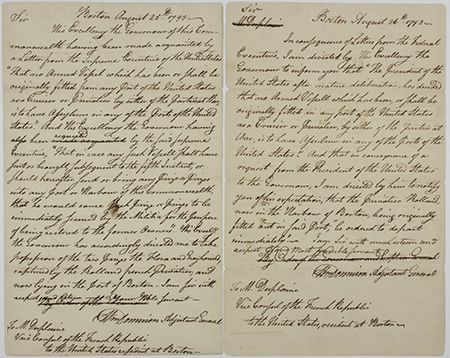 Boston August 25th 1793 –
Sir
His Excellency the Governour of this Com-
monwealth having been made acquainted by
a Letter from the Supreme Executive of the United States
"That no Armed Vessell which has been or shall be
originally fitted from any Port of the United States
as a Cruiser or Privateer by either of the Parties at War,
is to have Asylum in any of the Ports of the United
States." And His Excellency the Governour having
also been requested by the said supreme
Executive, "That in case any such Vessell shall have
sent, or should subsequent to the fifth instant, or
should hereafter send or bring any Prize or Prizes
into any Port or Harbour of the Commonwealth,
that he would cause such Prize or Prizes to be
immediately seized by the Militia for the purpose
of being restored to the former Owners" His Excelly
the Governour has accordingly directed me to take
possession of the two Prizes the Flora and
captured by the Rolland french Privateer, and
now lying in the Port of Boston. I am Sir with
respect
Wm Donnison Adjutant General
To M Duplaine
Vice Consul of the French Republic
to the United States resident at Boston –
Sir
Boston August 26th 1793 –
In consequence of Letters from the Federal
Executive, I am directed by His Excelly the
Governour to inform you that "The President of the
United States after mature deliberation, has decided
that no Armed Vessell which has been, or shall be
originally fitted in any port of the United States
as a Cruiser or Privateer, by either of the parties at
War, is to have Asylum in any of the Ports of the
United States." And that in consequence of a
request from the President of the United States
to the Governour, I am directed by him to notify
you of his expectation, that the Privateer Rolland,
now in the Harbour of Boston, having originally
fitted out in said Port, be ordered to depart
immediately – I am Sir with much esteem and
respect
Wm Donnison Adjutant General
To M Duplaine
Vice Consul of the French Republic
to the United States, resident at Boston –